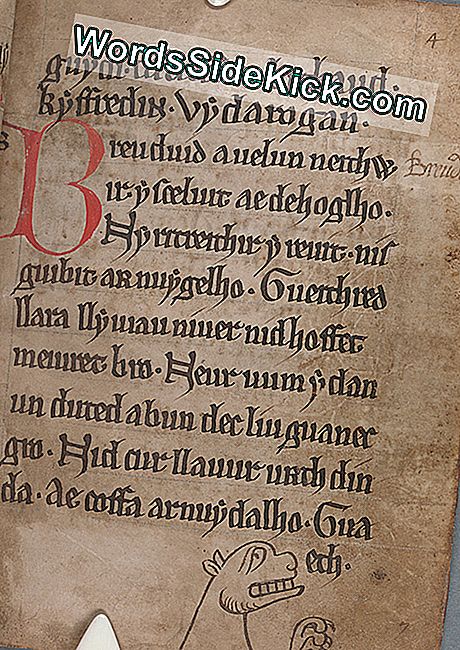 WordsSideKick.com
4
kyffredin. vy darogan.
Breuduid a uelun neithw
ir y sceluit ae dehoglho.
Ny ritreithir y reuit. nis
guibit ar nuy gelho. Gueithred
llara llyuiau niuer nid hoffet
meuret bro. Neur uum y dan
un duted a bun dec liu guanec
gro. Nid cur llauur urth din
da. ae coffa ar nuy dalho. Gua
eth.